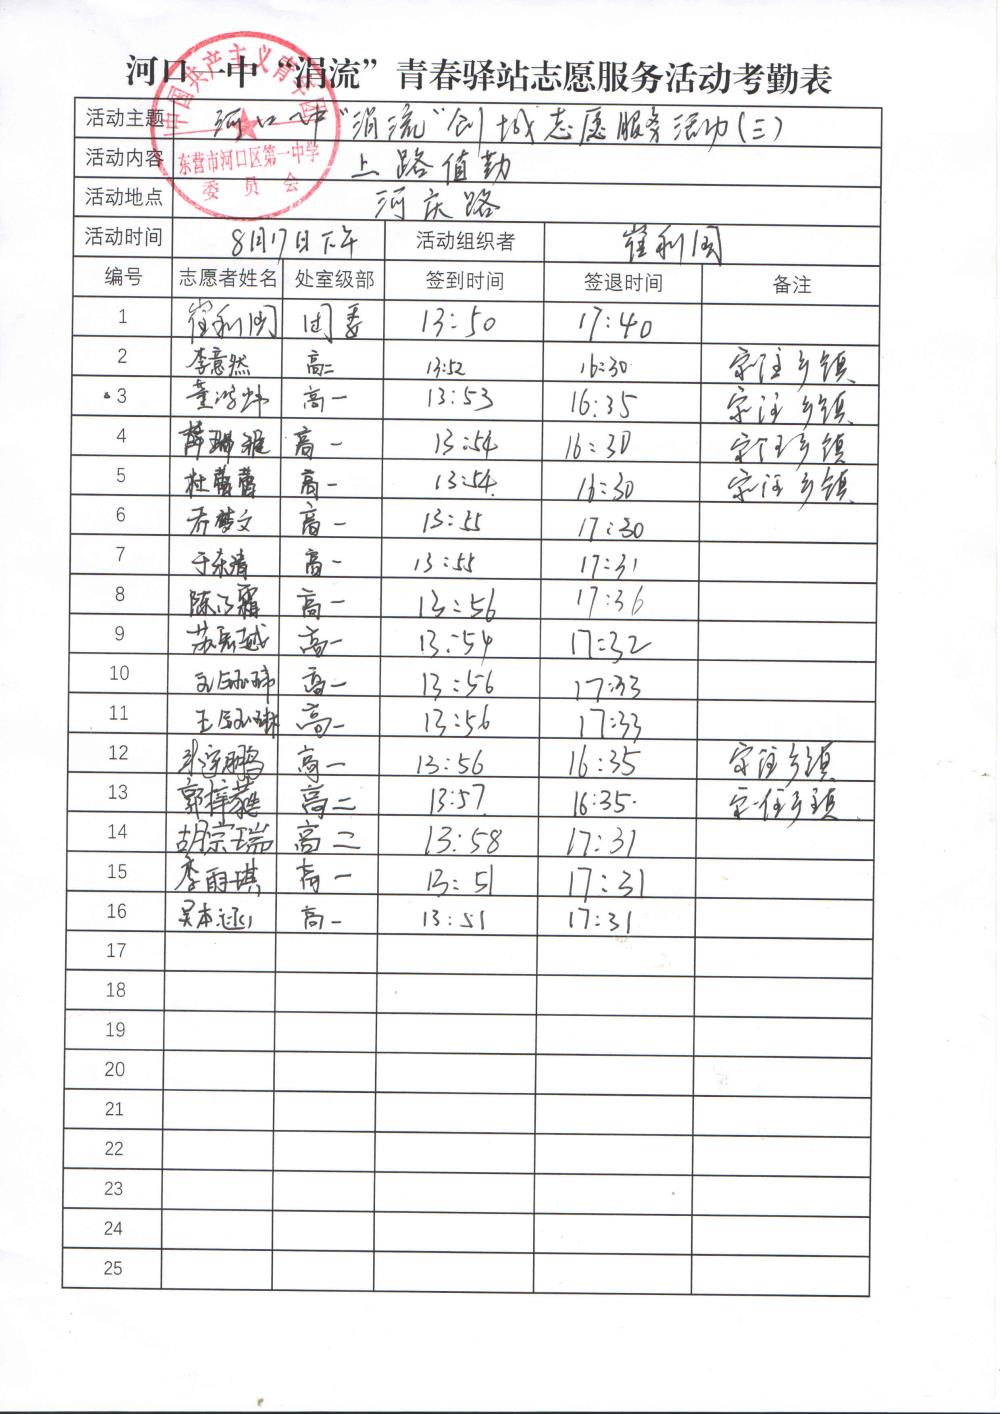 河口一中“涓流”青春驿站志愿服务活动考勤表
中国共产主义青年团
东营市河口区第一中学
委员会
活动主题 河口一中“涓流”创城志愿服务活动(三)
活动内容 上路值勤
活动地点 河庆路
活动时间 8月17日下午 活动组织者 崔利国
编号 志愿者姓名 处室级部 签到时间 签退时间 备注
1 崔利国 团委 13:50 17:40
2 李意然 高二 13:52 16:30 家住乡镇
3 高一 13:53 16:35 家住乡镇
4 薛瑞雅 高一 13:54 16:30 家住乡镇
5 杜蕾蕾 高一 13:54 16:30 家住乡镇
6 乔梦文 高一 13:55 17:30
7 于东清 高一 13:55 17:31
8 高一 13:56 17:36
9 高一 13:54 17:32
10 高一 13:56 17:33
11 高一 13:56 17:33
12 高一 13:56 16:35 家住乡镇
13 高二 13:57 16:35 家住乡镇
14 胡宗瑞 高二 13:58 17:31
15 李雨琪 高一 13:51 17:31
16 吴本涵 高一 13:51 17:31
17
18
19
20
21
22
23
24
25